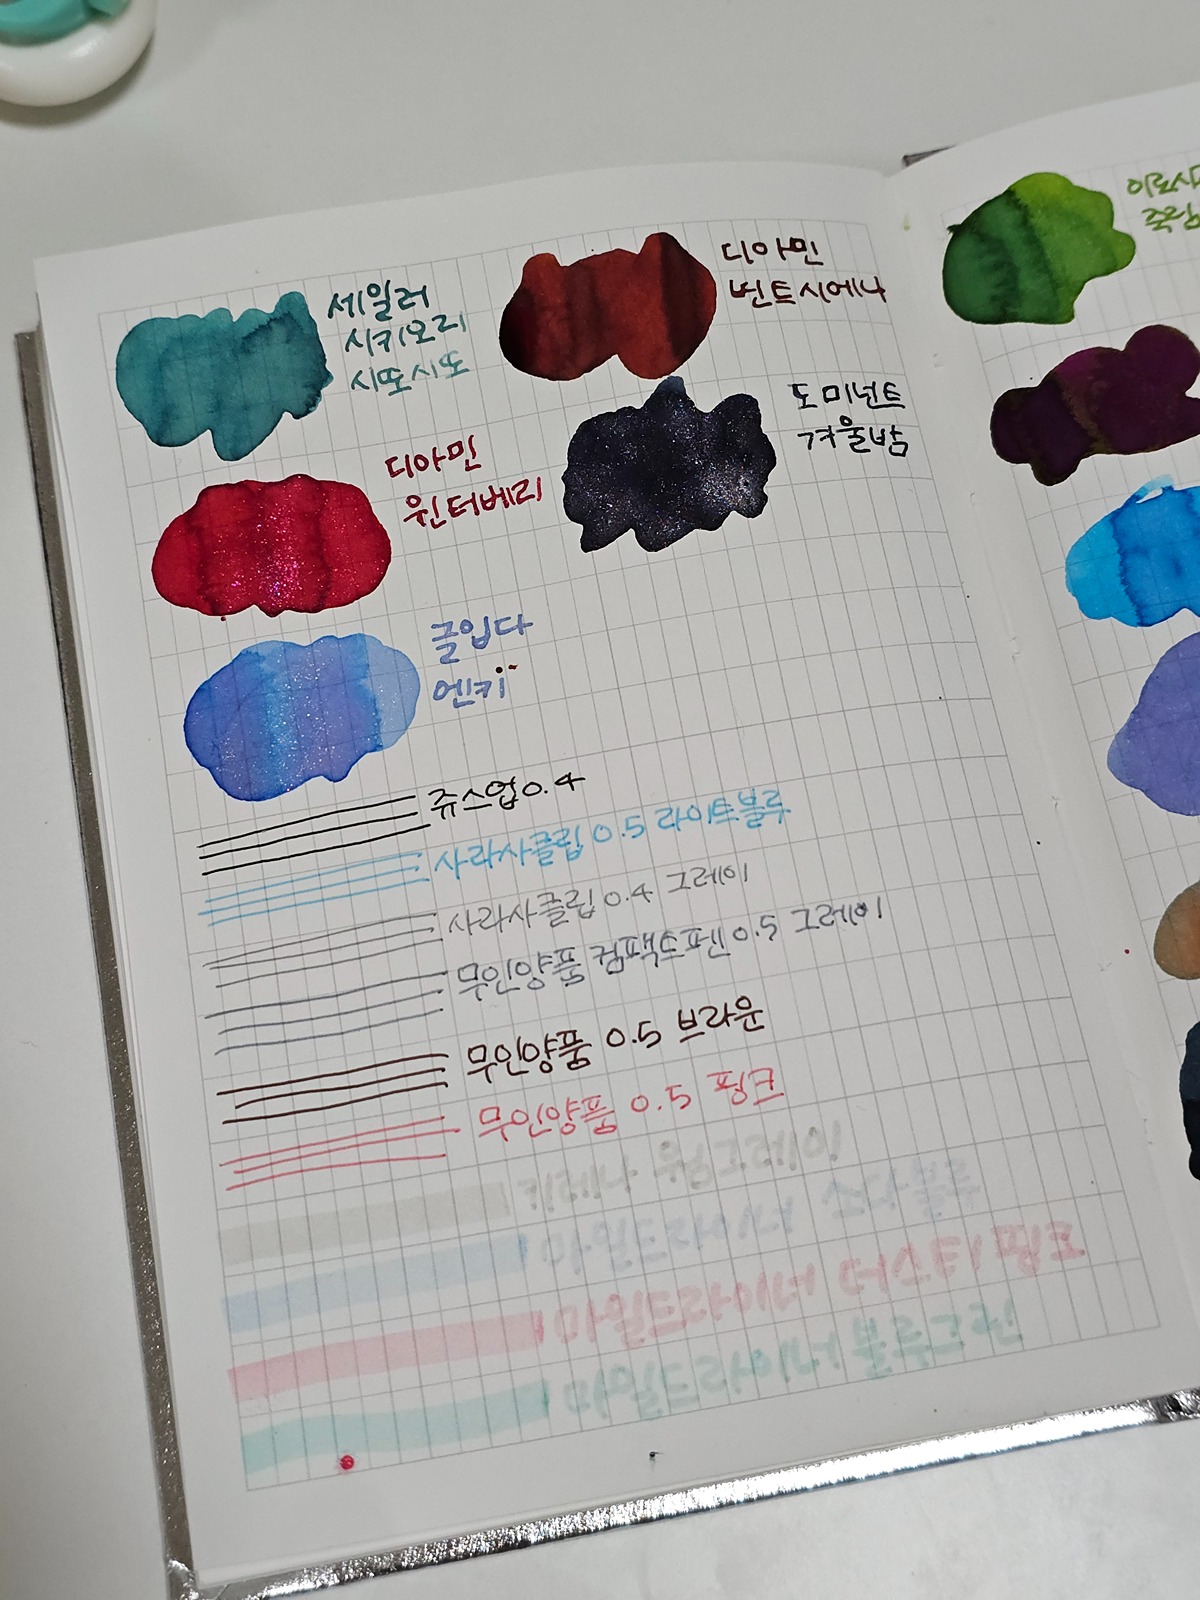 세일러
시키오리
시또시또
디아민
번트시에나
디아민
윈터베리
도미넌트
겨울밤
글입다
엔키
쥬스업 0.4
사라사클립 0.5 라이트블루
사라사클립 0.4 그레이
무인양품 컴팩트펜 0.5 그레이
무인양품 0.5 브라운
무인양품 0.5 핑크
키레나 웜그레이
마일드라이너 소다블루
마일드라이너 더스티 핑크
마일드라이너 블루그린
죽림